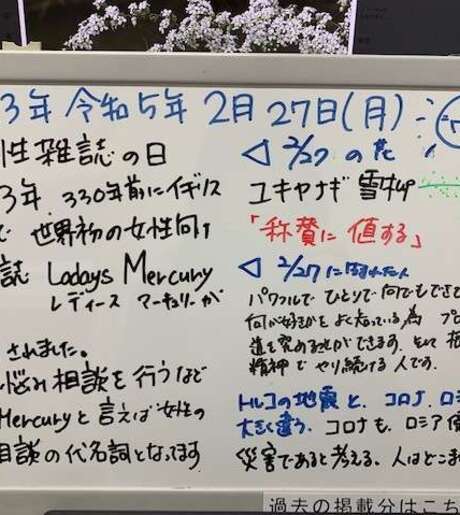 3年 令和5年 2月 27日(月)
性雑誌の日
3年、330年前にイギリス
で 世界初の女性向け
誌 Ladays Mercury
レディース マーキュリーが
されました。
悩み相談を行うなど
Mercuryと言えば女性の
相談の代名詞となってます
◁ 2/27 の花
ユキヤナギ 雪柳
「称賛に値する」
◁ 2/27に
パワフルで ひとりで何でもできて
何が好きかをよく知っている為 プロ
道を究めることができます。そして
精神でやり続ける人です。
トルコの地震と、コロナ、ロシ
大きく違う。コロナも、ロシア
災害であると考える、人はどこま
過去の掲載分はこち